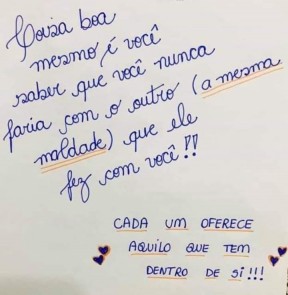 Coisa boa
mesmo é você
saber que você nunca
faria com o outro (a mesma
maldade) que ele
fez com você!!
CADA UM OFERECE
AQUILO QUE TEM
DENTRO DE SI!!!